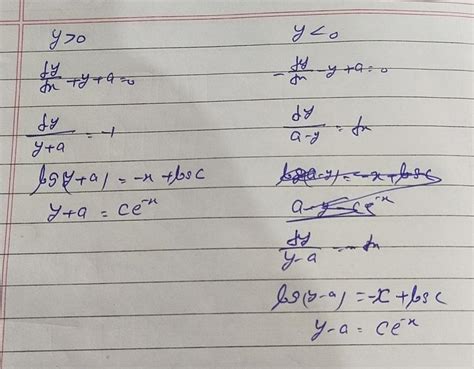 y>0
dy/dx +y+a=0
dy/(y+a) = -1
log(y+a) = -x + log c
y+a = ce^-x
y<0
-dy/dx -y+a=0
dy/(a-y) = dx
log(a-y) = -x + log c
a-y = ce^-x
dy/(y-a) = -dx
log(y-a) = -x + log c
y-a = ce^-x